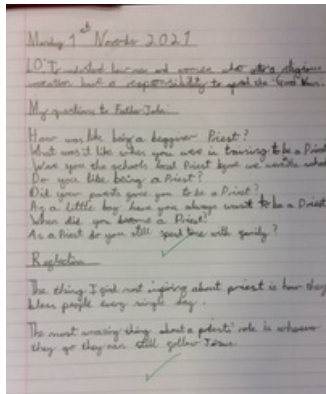 Monday 1st November 2021
LO: To understand how men and women who enter a religious
vocation have a responsibility to spread the Good News.
My questions to Father John:
How was like being a begginer Priest?
What was it like when you were in training to be a Priest
Was you the schools local Priest before we
Do you like being a Priest?
Did your parents you to be a Priest?
As a little boy have you always want to be a Priest
When did you become a Priest?
As a Priest do you still spend time with family?
Reflection
The thing I find most inspiring about priest is how they
bless people every single day.
The most amazing thing about a priests' role is
they go they can still follow Jesus.